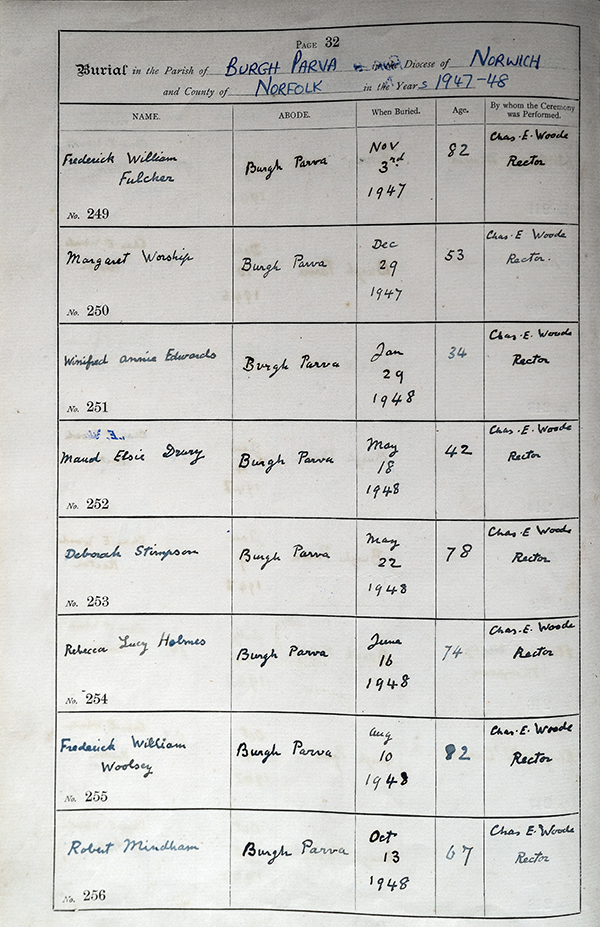 PAGE 32
Burial in the Parish of BURGH PARVA Diocese of NORWICH
and County of NORFOLK in the Years 1947-48
NAME. ABODE. When Buried. Age. By whom the Ceremony was Performed.
Frederick William Fulcher Burgh Parva Nov 3rd 1947 82 Chas. E. Woode Rector
No. 249
Margaret Worship Burgh Parva Dec 29 1947 53 Chas. E Woode Rector.
No. 250
Winifred annie Edwards Burgh Parva Jan 29 1948 34 Chas. E. Woode Rector
No. 251
Maud Elsie Drury Burgh Parva May 18 1948 42 Chas. E Woode Rector
No. 252
Deborah Stimpson Burgh Parva May 22 1948 78 Chas. E Woode Rector
No. 253
Rebecca Lucy Holmes Burgh Parva June 16 1948 74 Chas. E. Woode Rector
No. 254
Frederick William Woolsey Burgh Parva Aug 10 1948 82 Chas. E. Woode Rector
No. 255
Robert Mindham Burgh Parva Oct 13 1948 67 Chas E. Woode Rector
No. 256